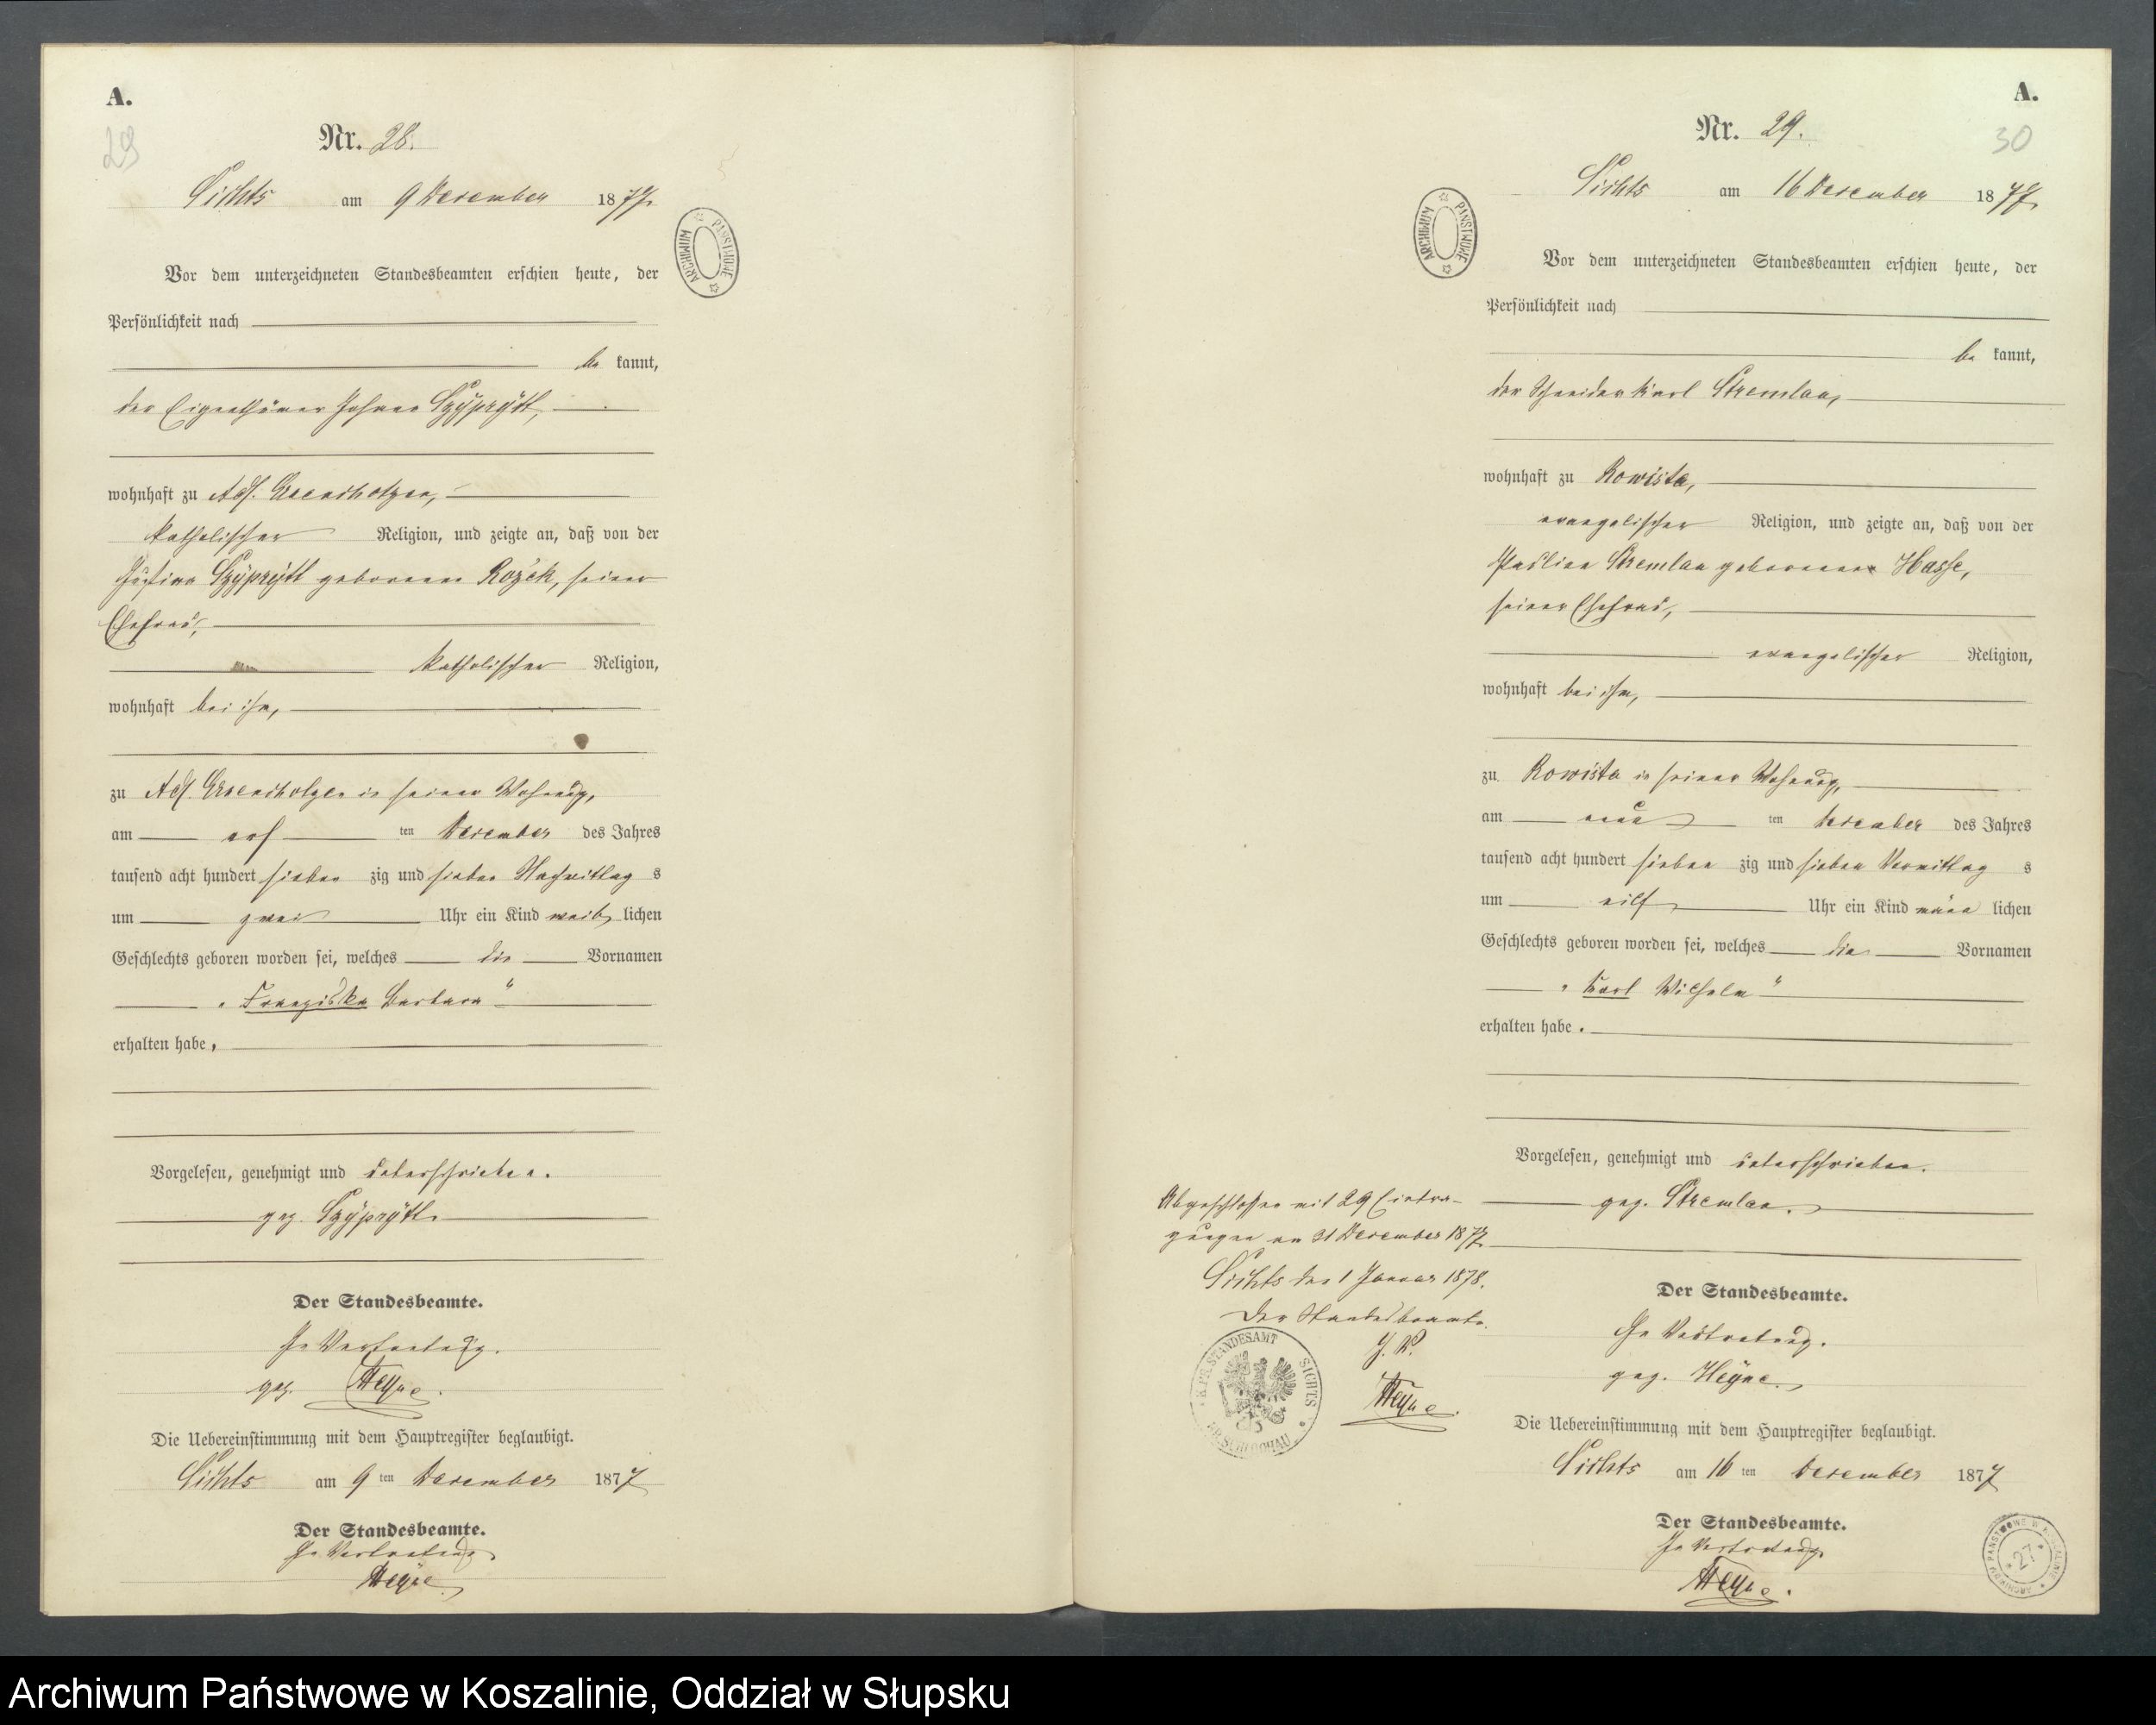 A.
29
Nr. 28.
Sichts am 9 December 1877.
Vor dem unterzeichneten Standesbeamten erschien heute, der
Persönlichkeit nach
be kannt,
der Eigenthümer Johann Szÿprÿtt,
wohnhaft zu Adl.
katholischer Religion, und zeigte an, daß von der
Justina Szÿprÿtt geborenen seiner
Ehefrau,
katholischer Religion,
wohnhaft bei ihm,
zu Adl. in seiner Wohnung,
am ten December des Jahres
tausend acht hundert sieben zig und sieben Nachmittag s
um zwei Uhr ein Kind weib lichen
Geschlechts geboren worden sei, welches die Vornamen
„Franziska Barbara“
erhalten habe.
Vorgelesen, genehmigt und unterschrieben.
gez. Szÿprÿtt.
Der Standesbeamte.
In Vertretung.
gez. Heyne.
Die Uebereinstimmung mit dem Hauptregister beglaubigt.
Sichts am 9 ten December 1877
Der Standesbeamte.
In Vertretung
Heyne
ARCHIWUM PAŃSTWOWE
A.
30
Nr. 29.
Sichts am 16 December 1877.
Vor dem unterzeichneten Standesbeamten erschien heute, der
Persönlichkeit nach
be kannt,
der Schneider Karl Stremlau,
wohnhaft zu Rowista,
evangelischer Religion, und zeigte an, daß von der
Pauline Stremlau geborenen Hasse,
seiner Ehefrau,
evangelischer Religion,
wohnhaft bei ihm,
zu Rowista in seiner Wohnung,
am neun ten December des Jahres
tausend acht hundert sieben zig und sieben Vormittag s
um eilf Uhr ein Kind männ lichen
Geschlechts geboren worden sei, welches die Vornamen
„Karl Wilhelm“
erhalten habe.
Vorgelesen, genehmigt und unterschrieben.
gez. Stremlau.
Der Standesbeamte.
In Vertretung.
gez. Heÿne.
Die Uebereinstimmung mit dem Hauptregister beglaubigt.
Sichts am 16 ten December 1877
Der Standesbeamte.
In Vertretung
Heyne.
ARCHIWUM PAŃSTWOWE
Abgeschlossen mit 29 Eintra-
gungen am 31 December 1877
Sichts den 1 Januar 1878.
Der Standesbeamte.
J. V.
Heyne.
K. PR. STANDESAMT SICHTS
KR. SCHLOCHAU
ARCHIWUM PAŃSTWOWE W KOSZALINIE
27
Archiwum Państwowe w Koszalinie, Oddział w Słupsku